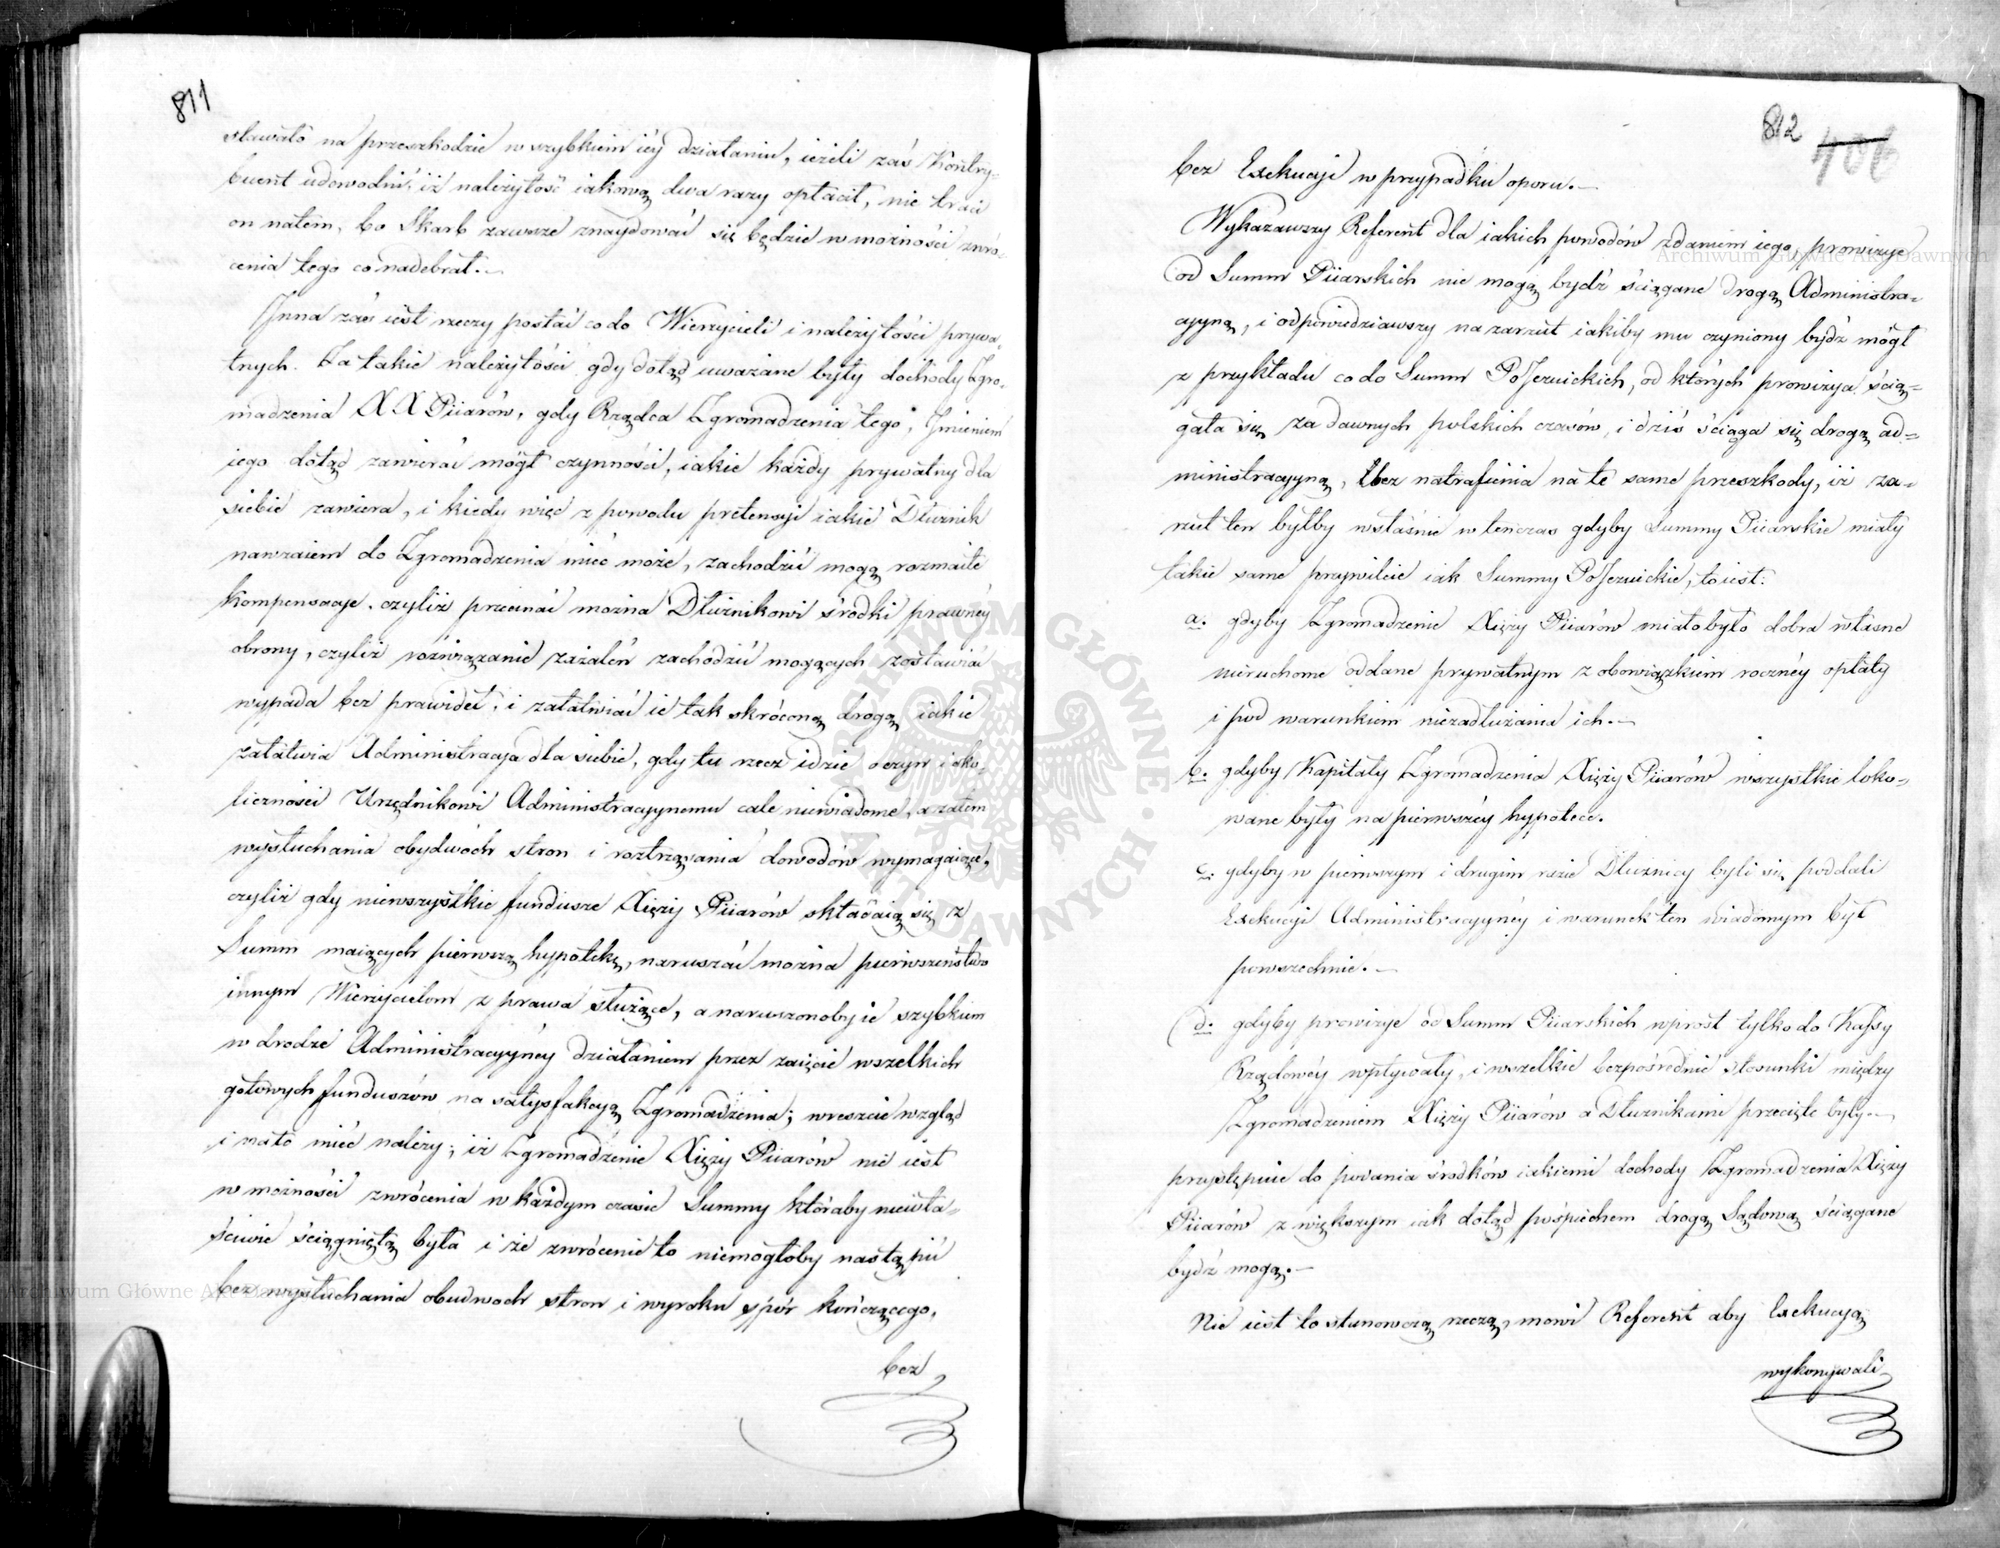 811
stawało na przeszkodzie w szybkiem iéy działaniu, ieżeli zaś Kontry-
buent udowodni, iż należytość iakową dwa razy opłacił, nie traci
on na tem, bo Skarb zawsze znaydować się będzie w możności zwró-
cenia tego co nadebrał.—
Inna zaś iest rzeczy postać co do Wierzycieli i należytości prywa-
tnych. Za takie należytości gdy dotąd uważane były dochody Zgro-
madzenia XX Piiarów, gdy Rządca Zgromadzenia tego, Imieniem
iego dotąd zawierać mógł czynności, iakie każdy prywatny dla
siebie zawiera, i kiedy więc z powodu pretensyi iakie Dłużnik
nawzaiem do Zgromadzenia mieć może, zachodzić mogą rozmaite
Kompensacye, czyliż przecinać można Dłużnikowi środki prawnéy
obrony, czyliż rozwiązanie zażaleń zachodzić mogących zostawiać
wypada bez prawideł, i załatwiać ie tak skróconą drogą iakie
załatwia Administracya dla siebie, gdy tu rzecz idzie o czyn i oko-
liczności Urzędnikowi Administracyynemu całe niewiadome, a zatem
wysłuchania obydwóch stron i roztrząsania dowodów wymagaiące,
czyliż gdy niewszystkie fundusze Xięży Piiarów składaią się z
Summ maiących pierwszą hypotekę, naruszać można pierwszeństwo
innym Wierzycielom z prawa służące, a naruszonoby ie szybkiem
w drodze Administracyynéy działaniem przez zaięcie wszelkich
gotowych funduszów na satysfakcyą Zgromadzenia; wreszcie wzgląd
i na to mieć należy, iż Zgromadzenie Xięży Piiarów nie iest
w możności zwrócenia w każdym czasie Summy któraby niewła-
ściwie ściągniętą była i że zwrócenie to niemogłoby nastąpić
bez wysłuchania obudwoch stron i wyroku spór kończącego,
bez
812
406
bez Exekucyi w przypadku oporu.—
Wykazawszy Referent dla iakich powodów zdaniem iego, prowizye
od Summ Piiarskich nie mogą bydź ściągane drogą Administra-
cyyną, i odpowiedziawszy na zarzut iakiby mu czyniony bydź mógł
z przykładu co do Summ PoJezuickich, od których prowizya ścią-
gała się za dawnych polskich czasów, i dziś ściąga się drogą ad-
ministracyyną, bez natrafienia na te same przeszkody, iż za-
rzut ten byłby wstaśnie w tenczas gdyby Summy Piiarskie miały
takie same przywileie iak Summy PoJezuickie, to iest:
a. gdyby Zgromadzenie Xięży Piiarów miało było dobra własne
nieruchome oddane prywatnym z obowiązkiem rocznéy opłaty
i pod warunkiem niezadłużania ich.—
b. gdyby Kapitały Zgromadzenia Xięży Piiarów wszystkie loko-
wane były na pierwszéy hypotece.
c. gdyby w pierwszym i drugim razie Dłużnicy byli się poddali
Exekucyi Administracyynéy i warunek ten wiadomym był
powszechnie.—
d. gdyby prowizye od Summ Piiarskich wprost tylko do Kassy
Rządowéy wpływały, i wszelkie bezpośrednie stosunki między
Zgromadzeniem Xięży Piiarów a Dłużnikami przecięte były—
przystępuie do podania środków iakiemi dochody Zgromadzenia Xięży
Piiarów z większym iak dotąd pośpiechem drogą Sądową ściągane
bydź mogą.—
Nie iest to stanowczą rzeczą, mówi Referent aby Exekucyą
wykonywali